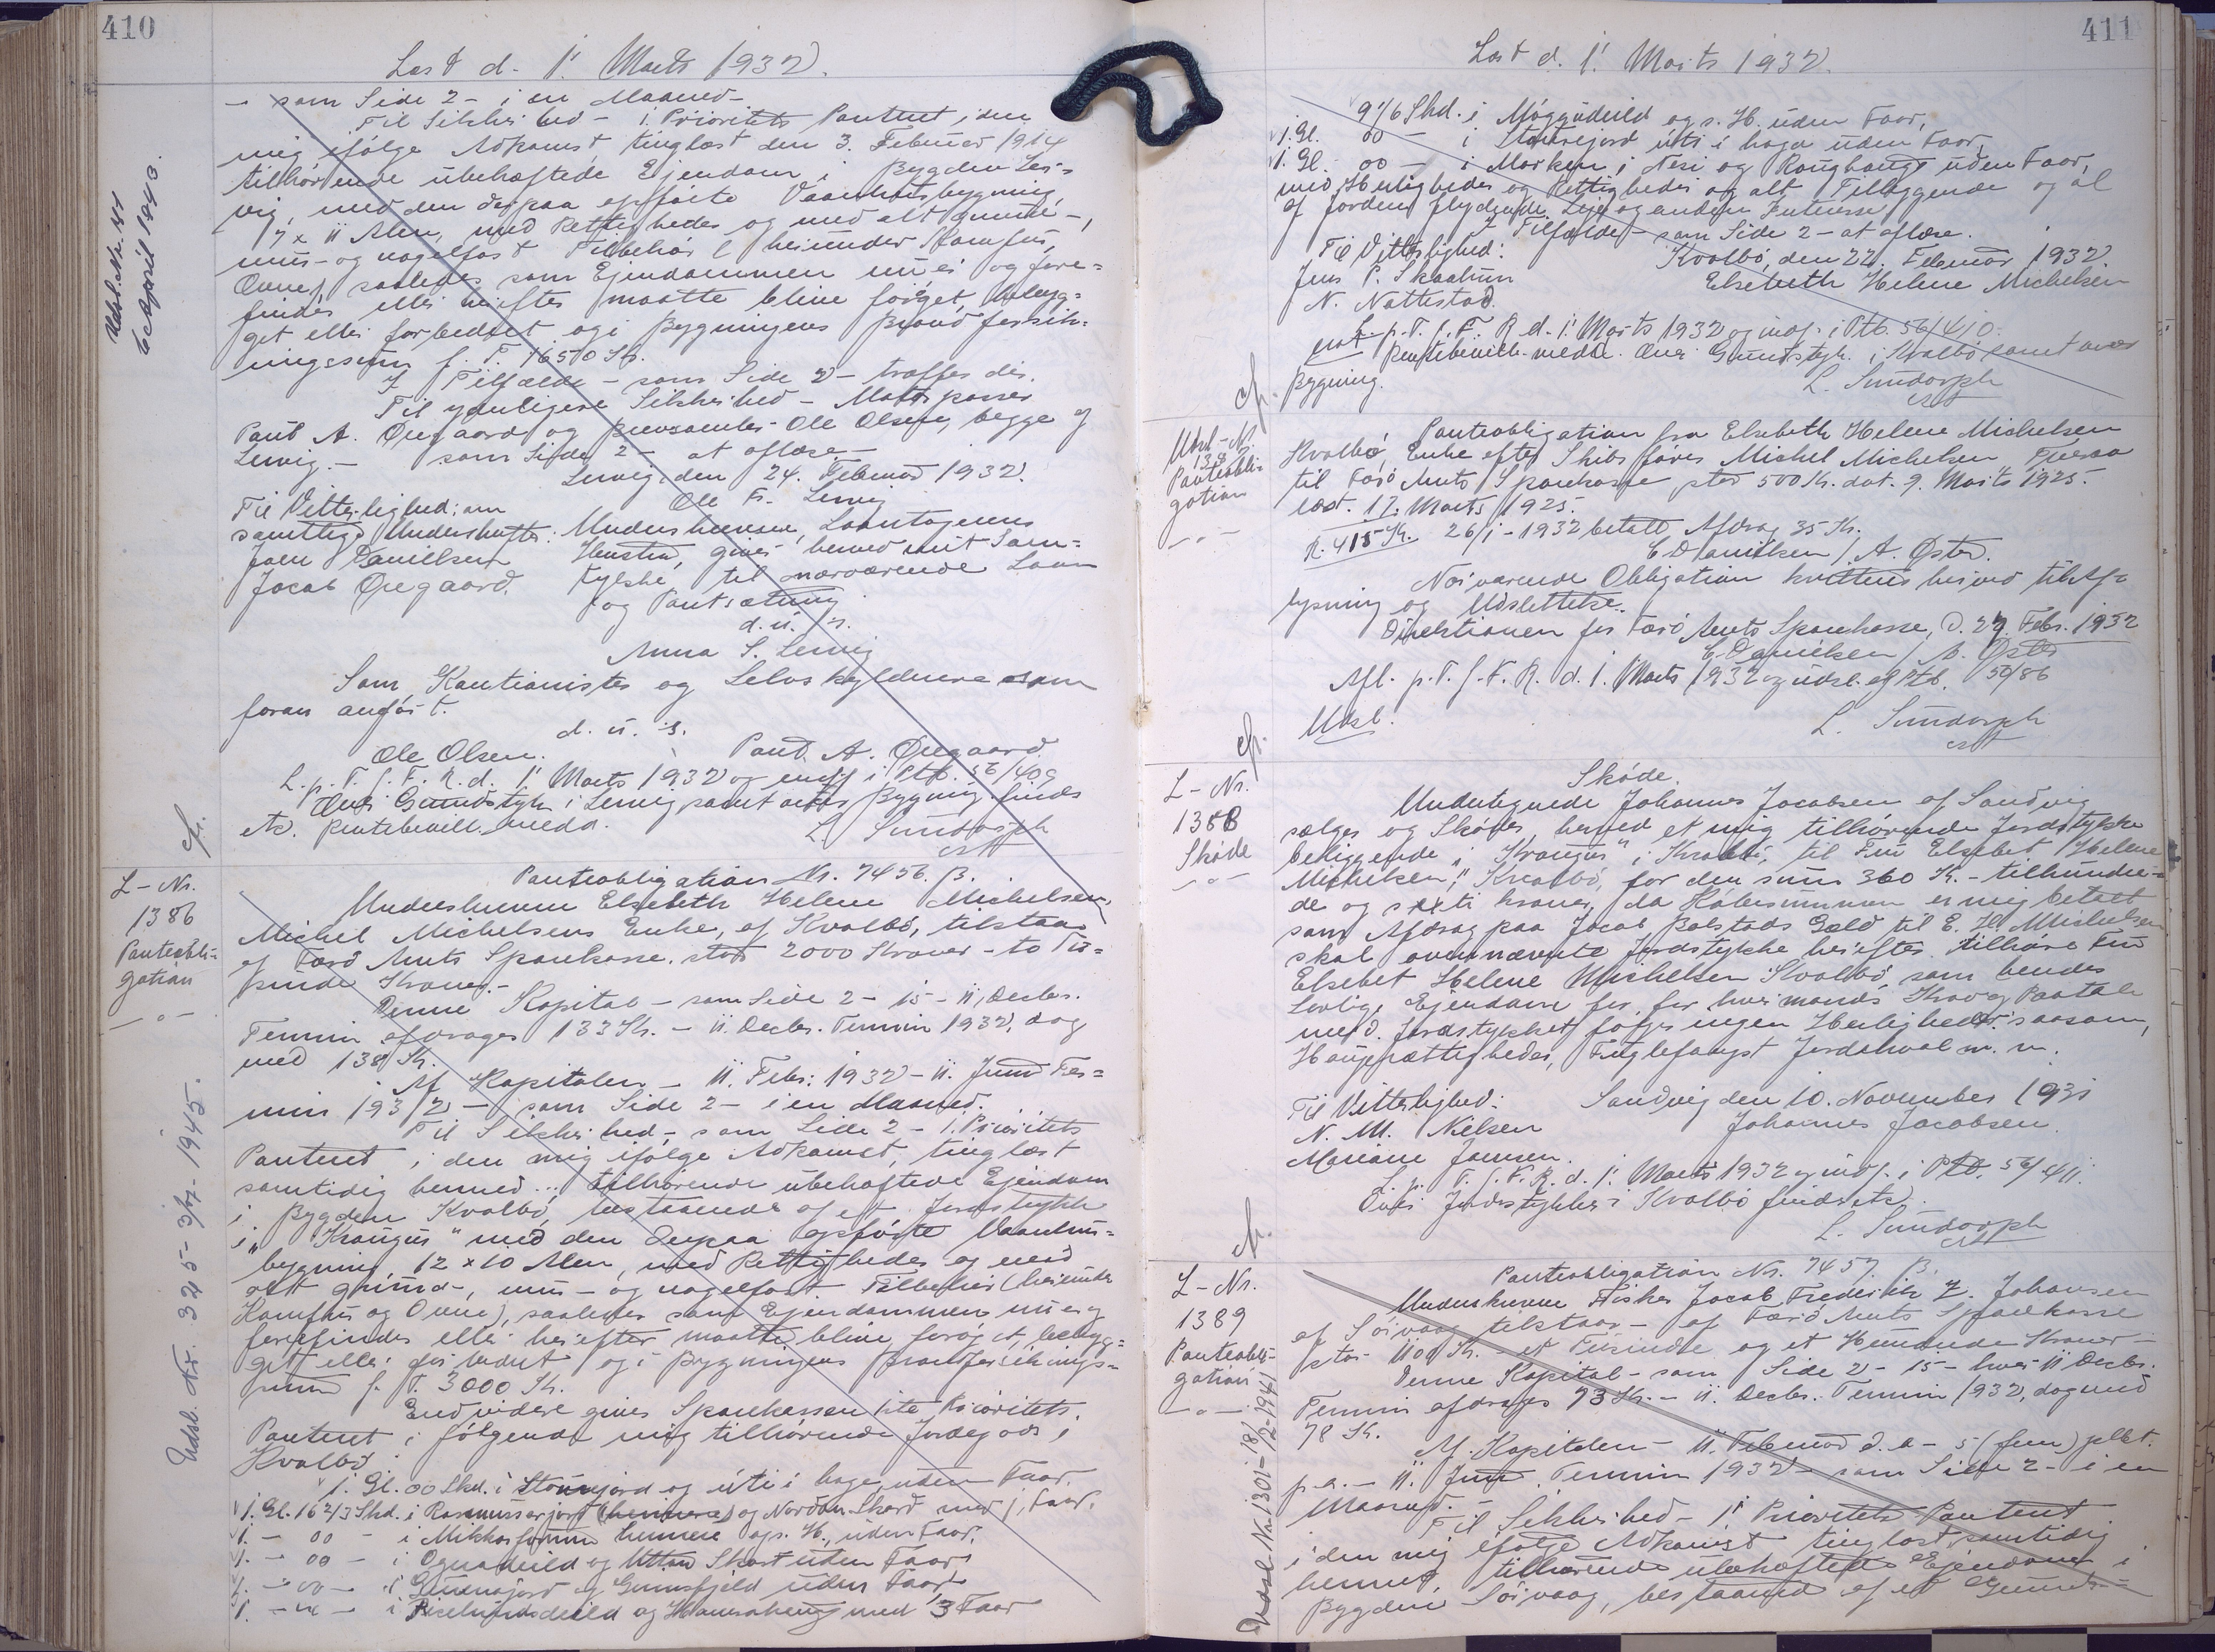 410
Læst d. 1' Marts 1932.
- som Side 2 - i en Maaned -
Til Sikkerhed - 1. Prioritets Panteret i den
mig ifølge Adkomst, tinglæst den 3. Februar 1914
tilhørende ubehæftede Ejendom i Bygden Ler-
vig, med den derpaa opførte Vaaanhusbygning
7 x 11 Alen, med Rettigheder og med alt grund-,
mur- og nagelfast Tilbehør (herunder Komfur,
Ovne) saaledes som Ejendommen nu er og fore-
findes eller herefter maatte blive forøget, bebyg-
get eller forbedret og i Bygningens Brandforsik-
ringssum p. T. 1650 Kr.
I Tilfælde - som Side 2 - træffes der.
Til yderligere Sikkerhed -
Poul A. Øregaard og Ole Olsen, begge af
Lervig. - som Side 2 - at aflæse -
Lervig, den 24. Februar 1932.
Ole Fr. Lervig
Til Vitterlighed om
samtlige Underskrifter:
Joen Danielsen
Jacob Øregaard.
Underskrevne, Laantagerens
Hustru, giver herved mit Sam-
tykke til nærværende Laan
og Pantsætning
d. u. s.
Anna S. Lervig
Som Kautionister og Selvskyldnere som
foran anført.
d. u. s.
Ole Olsen. Poul A. Øregaard.
L. p. T. f. F. R. d. 1' Marts 1932 og indf. i Ptb. 56/409
Over Grundstyk. i Lervig samt over Bygning findes
etc. Rentebevill. medd.
L. Sundorph
Udsl. Nr. 41
6 April 1943.
cfr.
L - Nr.
1386
Panteobli-
gation
Panteobligation Nr. 7456. B.
Underskrevne Elsebeth Helene Michelsen,
Michel Michelsens Enke, af Kvalbø, tilstaar
af Færø Amts Sparekasse, stor 2000 Kroner - to Tu-
sinde Kroner. -
Denne Kapital - som Side 2 - 15 - 11. Decbr.
Termin afdrages 133 Kr. - 11. Decbr. Termin 1932, dog
med 138 Kr.
Af Kapitalen - 11. Febr. 1932 - 11. Juni Ter-
min 1932 - som Side 2 - i en Maaned.
Til Sikkerhed - som Side 2 - 1. Prioritets
Panteret i den mig ifølge Adkomst, tinglæst
samtidig hermed ... tilhørende ubehæftede Ejendom
i Bygden Kvalbø, bestaaende af et Jordstykke
i "Krangus" med den derpaa opførte Vaanhus-
bygning 12 x 10 Alen, med Rettigheder og med
alt grund-, mur- og nagelfast Tilbehør (herunder
Komfur og Ovne), saaledes som Ejendommen nu er og
forefindes eller herefter maatte blive forøget, bebyg-
get eller forbedret og i Bygningens Brandforsikrings-
sum p. T. 3000 Kr.
Endvidere gives Sparekassen 1ste Prioritets
Panteret i følgende mig tilhørende Jordegods i
Kvalbø:
1. Gl. 00 Skd. i Stourejord og úti i haga, uden Faar.
1. Gl. 16 2/3 Skd. i Rasmussarjord (hennere) og Nordan Skord med 1 Faar.
1. - 00 - i Mikkas hennere og s. H., uden Faar.
1. - 00 - i Ognadeild og Uttan Skart uden Faar
1. - 00 - i og Gunnafjeld uden Faar
1. - - i og med 3 Faar
Udsl. Nr. 325 - 3/7 - 1945.
411
Læst d. 1' Marts 1932.
9 1/6 Skd. i Møggudeild og s. H. uden Faar,
1. Gl. 00 - i Stourejord úti i haga uden Faar,
1. Gl. 00 - i Marken i Nesi og uden Faar,
med Herligheder og Rettigheder og alt Tilliggende og al
af Jorden flydende Leje og anden Interesse.
I Tilfælde - som Side 2 - at aflæse.
Kvalbø, den 22. Februar 1932
Elsebeth Helene Michelsen
Til Vitterlighed:
Jens P. Skaalum
N. Nattestad.
L. p. T. f. F. R. d. 1' Marts 1932 og indf. i Ptb. 56/410.
Rentebevill. medd. Over Grundstyk. i Kvalbø samt over
Bygning.
L. Sundorph
cfr.
Udsl-Nr.
Panteobli-
gation
Panteobligation fra Elsebeth Helene Michelsen
Kvalbø, Enke efter Skibsfører Michel Michelsen
til Færø Amts Sparekasse stor 500 Kr. dat. 9. Marts 1925.
læst. 17. Marts 1925.
R. 415 Kr. 26/1 - 1932 betalt Afdrag 35 Kr.
C. Danielsen / A. Øster.
Nærværende Obligation kvitteres herved til Af-
lysning og Udslettelse.
Direktionen for Færø Amts Sparekasse, d. 27 Febr. 1932
C. Danielsen / A. Øster
Afl. p. T. f. F. R. d. 1. Marts 1932 og udsl. af Ptb. 50/86
Udsl.
L. Sundorph
cfr.
L - Nr.
1388
Skøde
Skøde.
Undertegnede Johannes Jacobsen af Sandvig
sælger og Skøder herved et mig tilhørende Jordstykke
beliggende i "Krangus" i Kvalbø, til Fru Elsebet Helene
Michelsen, Kvalbø, for den sum 360 Kr. - trihundre-
de og sexti kroner, da Købesummen er mig betalt
som Afdrag paa Jacob Balstads Gæld til E. H. Michelsen
skal ovennævnte Jordstykke herefter tilhøre Fru
Elsebet Helene Michelsen Kvalbø, som hendes
lovlige Ejendom fri for hver mands Krav og Paatale
med Jordstykket følger ingen Herligheder saasom,
Haugrættigheder, Fuglefangst Jordehval m. m.
Sandvig den 10. November 1931
Johannes Jacobsen.
Til Vitterlighed:
N. M. Nielsen
Mariane Joensen.
L. p. T. f. F. R. d. 1' Marts 1932 og indf. i Ptb. 56/411.
Over Jordstykker i Kvalbø findes etc.
L. Sundorph
cfr.
L - Nr.
1389
Panteobli-
gation
Panteobligation Nr. 7457. B.
Underskrevne Fisker Jacob Frederik Z. Johansen
af Sørvaag tilstaar - af Færø Amts Sparekasse
stor 1100 Kr. - et Tusinde og et Hundrede Kroner -
Denne Kapital - som Side 2 - 15 - hver 11 Decbr.
Termin afdrages 73 Kr. - 11. Decbr. Termin 1932, dog med
78 Kr.
Af Kapitalen - 11. Februar d. a. - 5 (fem) pCt.
p. a. - 11. Juni Termin 1932 - som Side 2 - i en
Maaned. -
Til Sikkerhed - 1' Prioritets Panteret
i den mig ifølge Adkomst tinglæst samtidig
hermed, tilhørende ubehæftede Ejendom i
Bygden Sørvaag, bestaaende af et Grund-
Udsl. Nr. 1301 - 18/12 - 1941